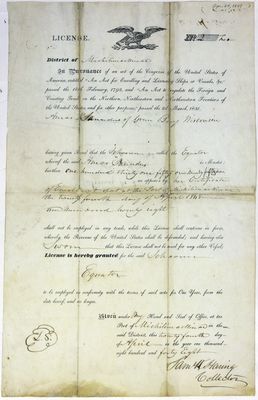 LICENSE.
District of Michilimackinac
In Pursuance of an act of the Congress of the United States of
America, entitled "An Act for Enrolling and Licensing Ships or Vessels, &c.
passed the 18th February, 1793, and "An Act to regulate the Foreign and
Coasting Trade on the Northern, Northeastern and Northwestern Frontiers of
the United States, and for other purposes," passed the 2d March, 1831,
Amos Saunders of Green Bay Wisconsin
having given Bond that the Schooner called the Equator
whereof the said Amos Saunders is Master,
burthen One hundred thirty one fifty
as appears by her
the twenty fourth day of April 1848
One thousand eight
shall not be employed in any trade, while this License shall continue in force,
whereby the Revenue of the United States shall be defrauded; and having also
Sworn that this License shall not be used for any other Vessel,
License is hereby granted for the said Schooner
Equator
to be employed in conformity with the terms of said acts for One Year, from the
date hereof, and no longer.
Given under My Hand and Seal of Office, at the
Port of Michilimackinac in the
said District, this twenty fourth day
of April in the year one thousand
eight hundred and forty Eight
Collector